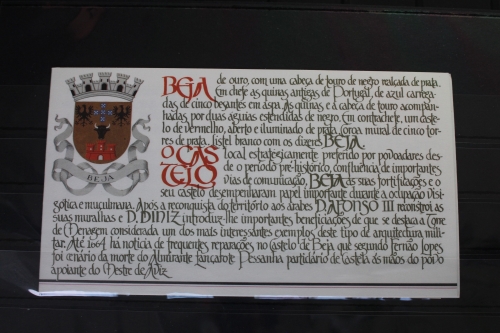 BEJA
de ouro, com uma cabeça de touro de negro realçada de prata.
Em chefe as quinas antigas de Portugal, de azul carrega-
das de cinco besantes em aspa. As quinas e a cabeça de touro acompan-
hadas, por duas águias estendidas de negro. Em contrachefe, um caste-
lo de vermelho, aberto e iluminado de prata. Coroa mural de cinco tor-
res de prata. Listel branco com os dizeres BEJA.
O CASTELO
local estrategicamente preferido por povoadores des-
de o período pré-histórico, confluência de importantes
vias de comunicação, BEJA as suas fortificações e o
seu castelo desempenharam papel importante durante a ocupação visi-
gótica e muçulmana. Após a reconquista do território aos árabes D. AFONSO III reconstrói as
suas muralhas e D. DINIZ introduz-lhe importantes beneficiações de que se destaca a Torre
de Menagem considerada um dos mais interessantes exemplos deste tipo de arquitectura mili-
tar. Até 1664 há notícia de frequentes reparações no Castelo de Beja que segundo Fernão Lopes
foi cenário da morte do Almirante Lançarote Pessanha partidário de Castela às mãos do povo
apoiante do Mestre de Aviz.
BEJA